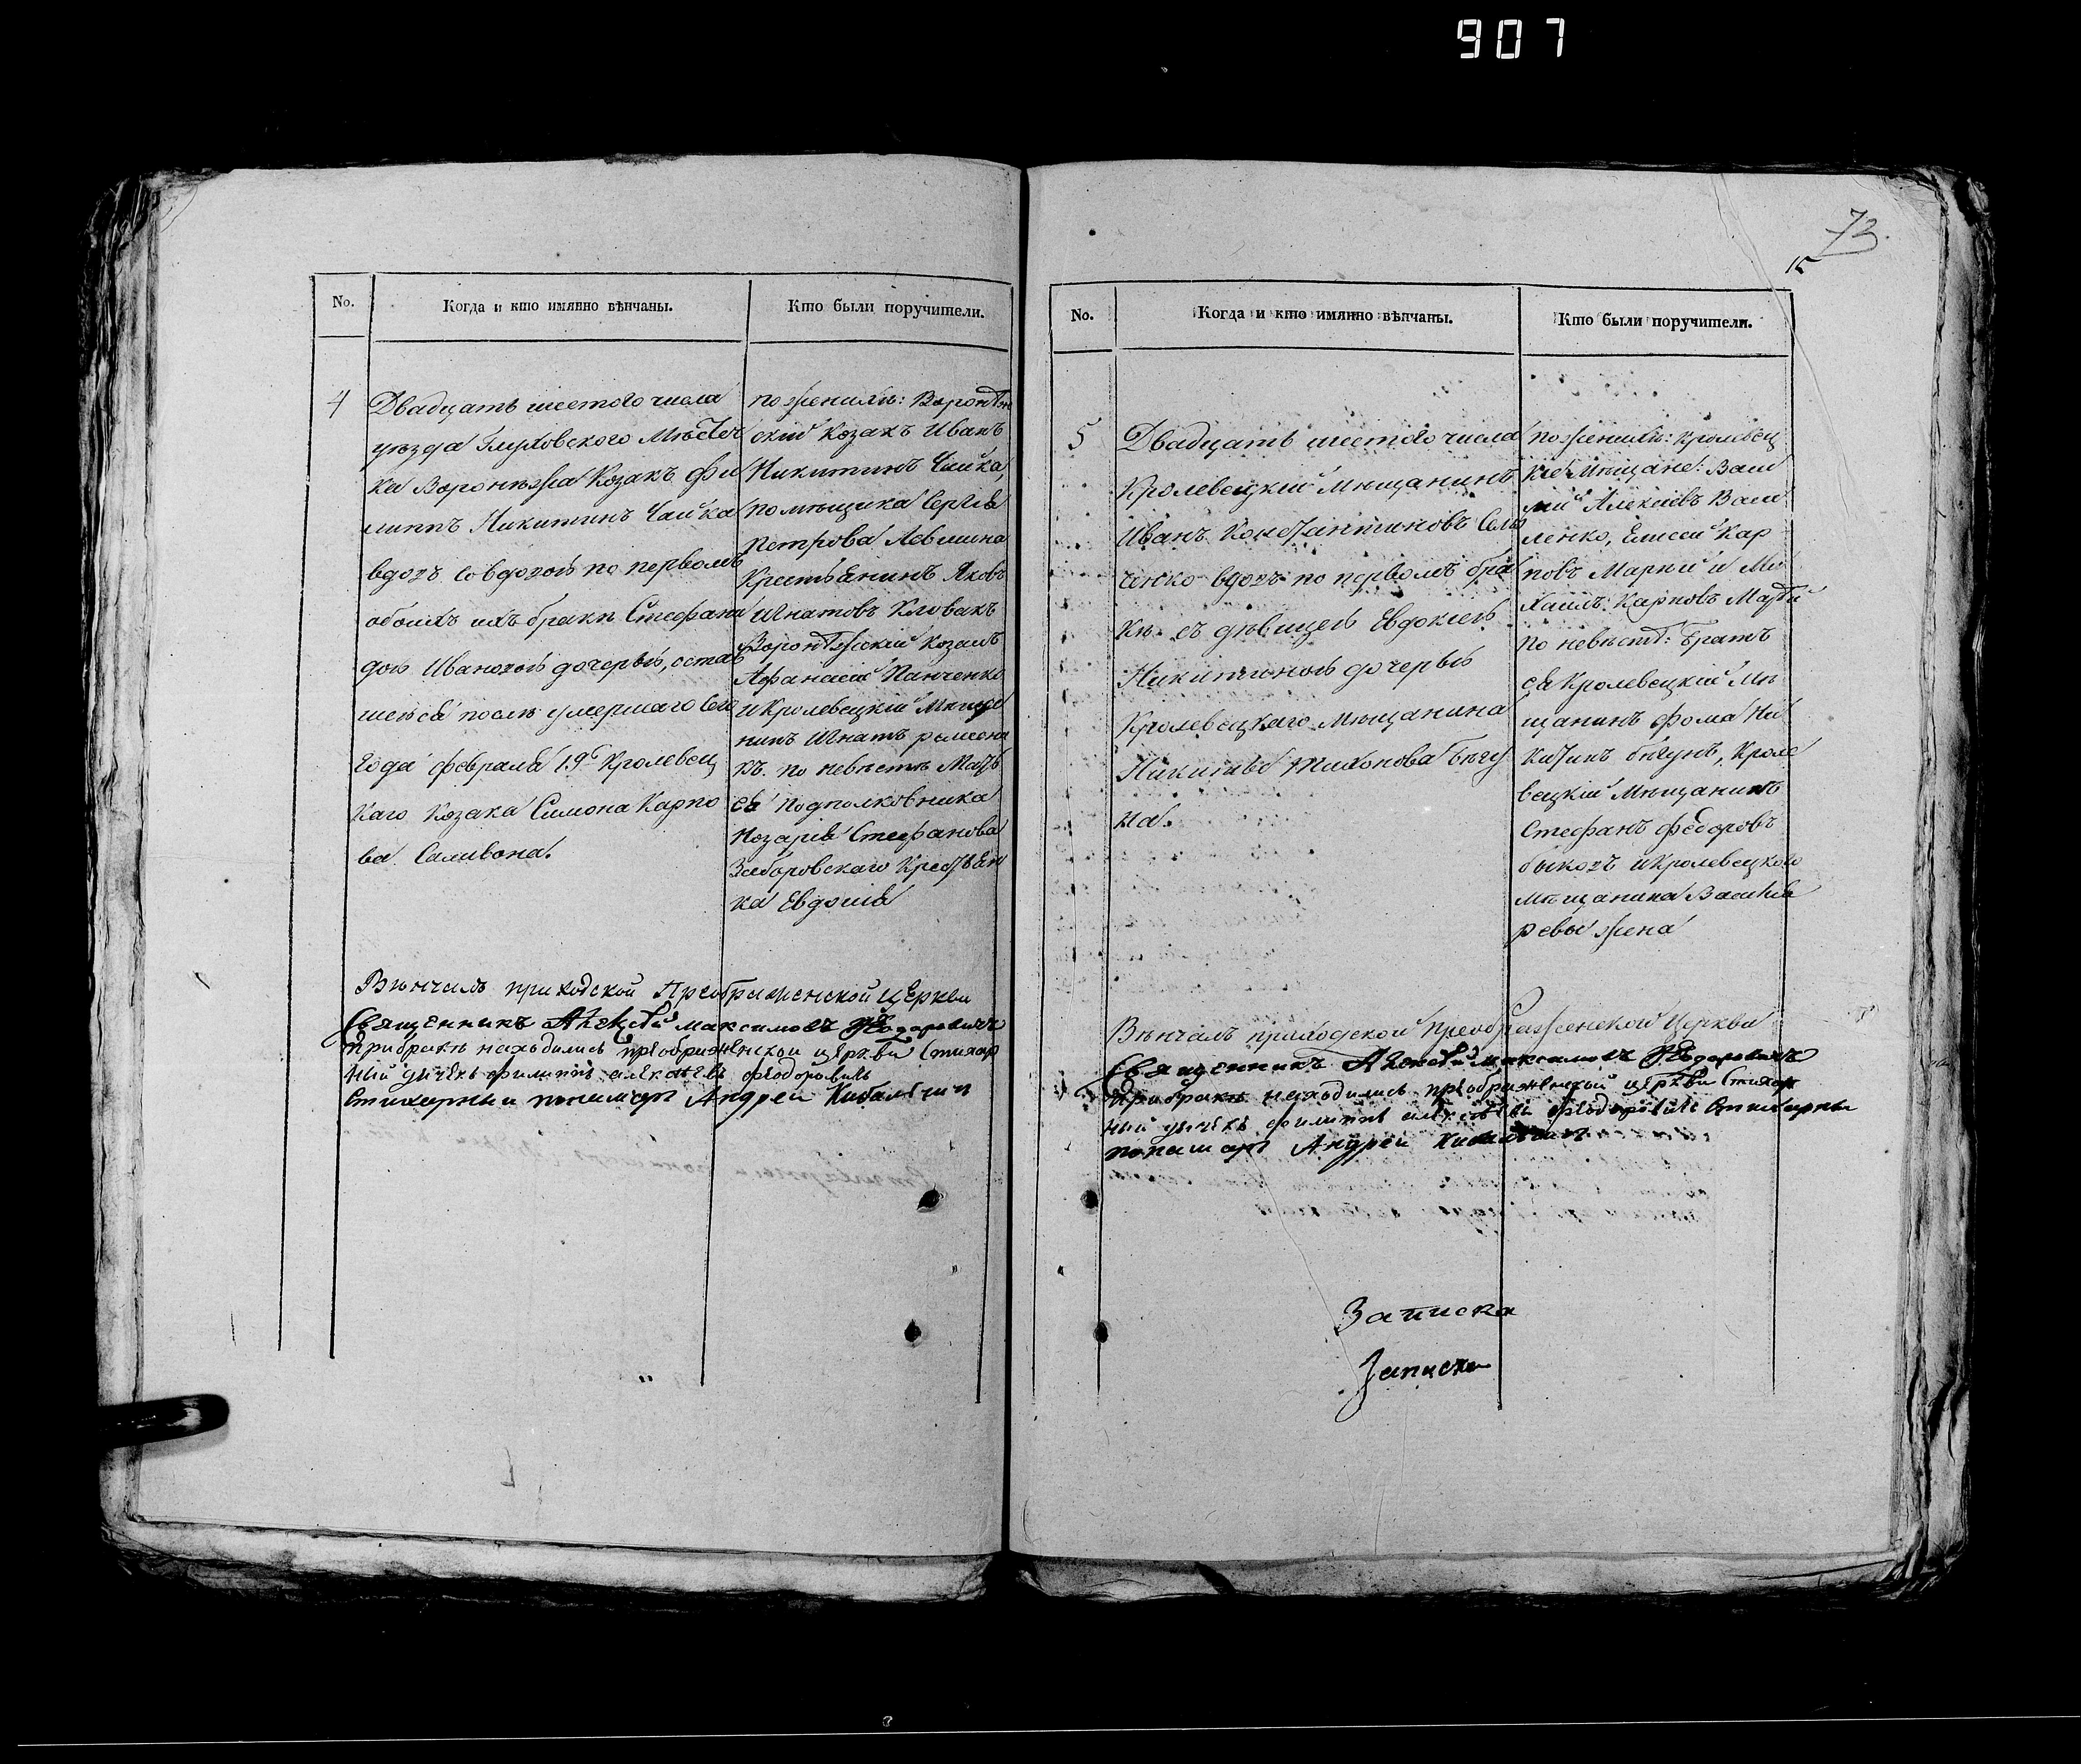 907
73
No.
Когда и кто имянно вѣнчаны.
Кто были поручители.
4
Двадцать шестого числа
уѣзда Глуховского Мѣстеч
ка Воронѣжа Козакъ Фи
липпъ Никитинъ Чайка
вдовъ совдовою по первомъ
обоихъ ихъ бракѣ Стефани
дою Ивановою дочерью, остав
шеюся послѣ умершаго сего
года февраля 19го Кролевец
каго Козака Симона Карпо
ва Саливона.
по женихѣ: Воронѣж
ский Козакъ Иванъ
Никитинъ Чайка,
помѣщика Сергія
Петрова Левшина
Крестьянинъ Яковъ
Игнатовъ
Воронѣжский Козакъ
Афанасий Панченко
и Кролевецкий Мѣща
нинъ Игнатъ
въ. по невѣстѣ Мать
ея подполковника
Назарія Стефанова
Заборовскаго Крестьян
ка Евдокія
Вѣнчалъ приходской Преображенской Церкви
Священникъ Алексѣй Максимовъ Федоровичъ
при бракѣ находились преображенской церкви Стихар
ный дячекъ филиппъ алексѣевъ феодоровичъ
Стихарный пономарь Андрей Кибальчич
No.
Когда и кто имянно вѣнчаны.
Кто были поручители.
5
Двадцать шестого числа
Кролевецкий Мѣщанинъ
Иванъ Константиновъ
ченко вдовъ по первомъ бра
кѣ съ дѣвицею Евдокіею
Никитиною дочерью
Кролевецкаго Мѣщанина
Никиты Тихонова Бѣгу
на.
по женихѣ: Кролевец
кіе Мѣщане: Васи
лий Алексѣевъ Васи
ленко, Елисей Кар
повъ Марпий и Ми
хаилъ Карповъ
по невѣстѣ: Братъ
ея Кролевецкий Мѣ
щанинъ Фома Ни
китинъ бѣгунъ, Кроле
вецкий Мѣщанинъ
Стефанъ Федоровъ
быковъ и Кролевецкого
Мѣщанина Василія
жена
Вѣнчалъ приходской Преображенской Церкви
Священникъ Алексѣй Максимовъ Федоровичъ
При бракѣ находились преображенской церкви Стихар
ный дячекъ филиппъ алексѣевъ феодоровичъ Стихарный
пономарь Андрей Кибальчичъ
Записка
Записка